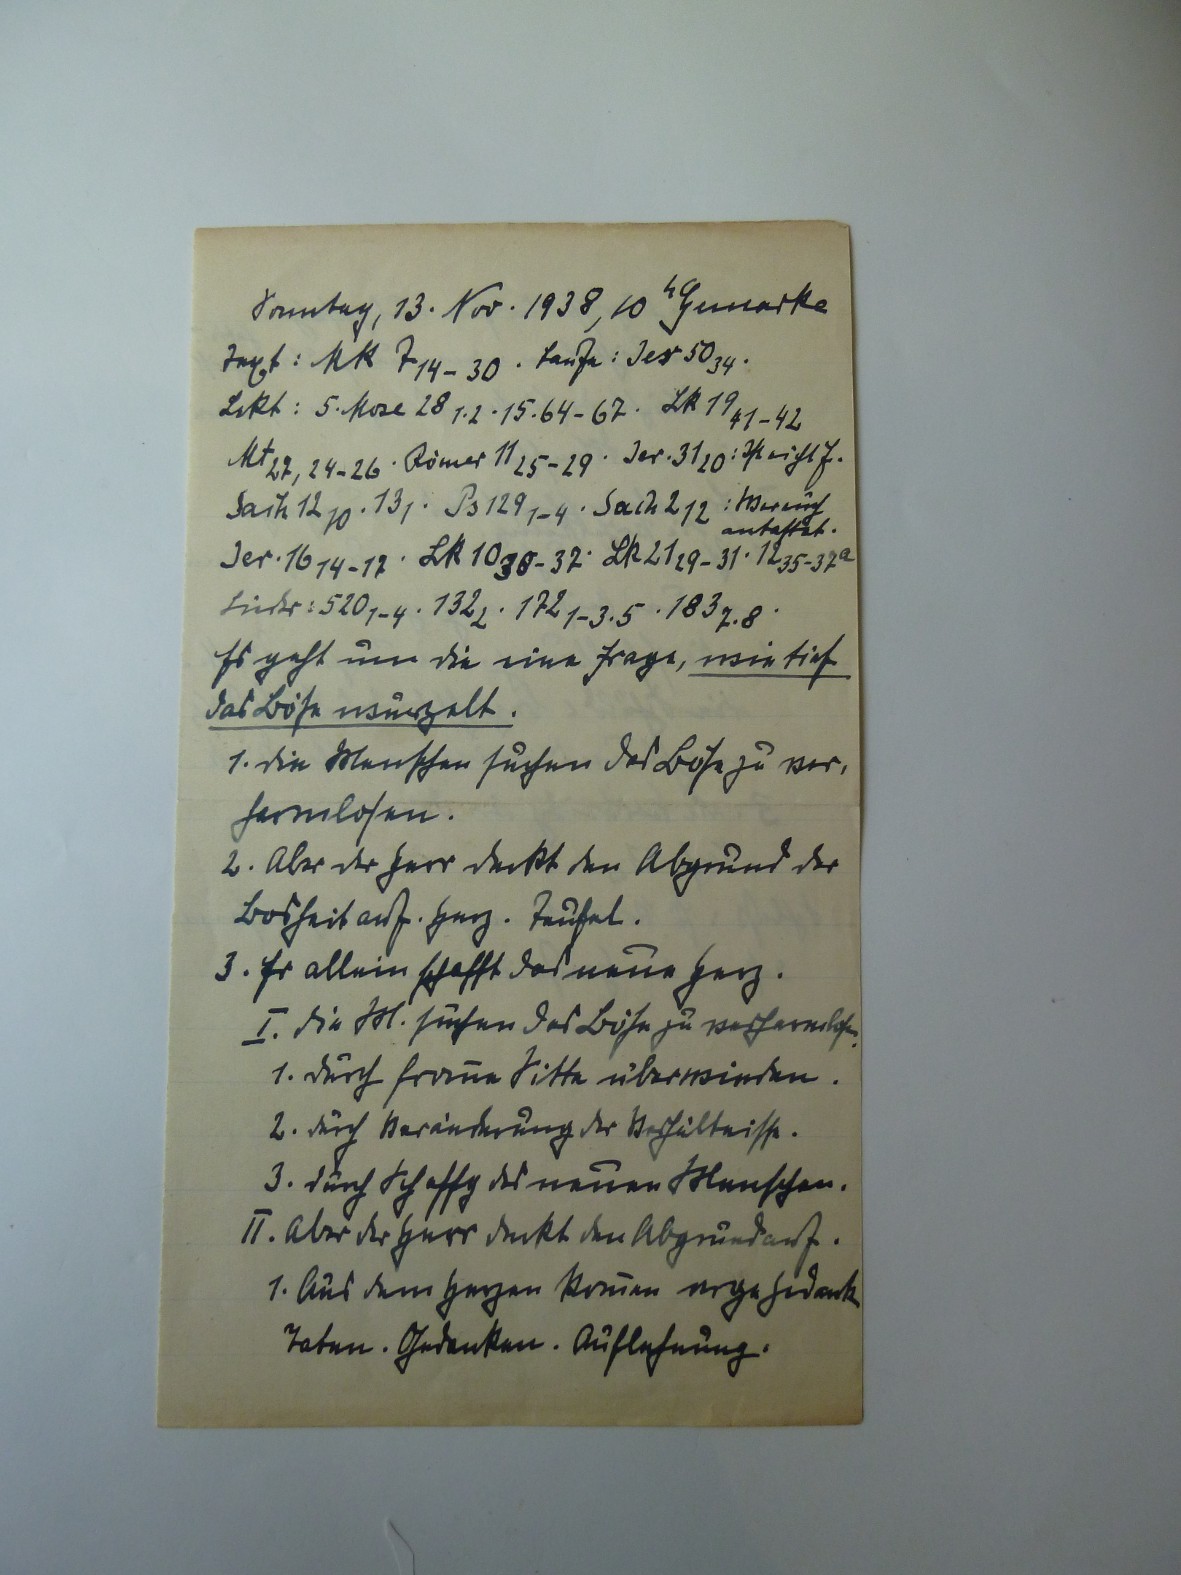 Sonntag, 13. Nov. 1938, 10 h Gemarke
Text: Mk 7 14-30. Taufe: Jer 50 34.
Lekt: 5. Mose 28 1.2.15.64-67. Lk 19 41-42
Mt 27, 24-26. Römer 11 25-29. Jer. 31 20: Ist nicht E.
Sach 12 10. 13 1. Ps 129 1-4. Sach 2 12: Wer euch
antastet.
Jer. 16 14-17. Lk 10 30-37. Lk 21 29-31. 12 35-37a
Lieder: 520 1-4. 132 2. 172 1-3.5. 183 7.8.
Es geht um die eine Frage, wie tief
das Böse wurzelt.
1. die Menschen suchen das Böse zu ver-
harmlosen.
2. Aber der Herr deckt den Abgrund der
Bosheit auf. Herz. Teufel.
3. Er allein schafft das neue Herz.
I. Die M. suchen das Böse zu verharmlosen.
1. durch fromme Sitte überwinden.
2. durch Veränderung der Verhältnisse.
3. durch Schaffg des neuen Menschen.
II. Aber der Herr deckt den Abgrund auf.
1. Aus dem Herzen kommen arge Gedank
Taten. Gedanken. Auflehnung.